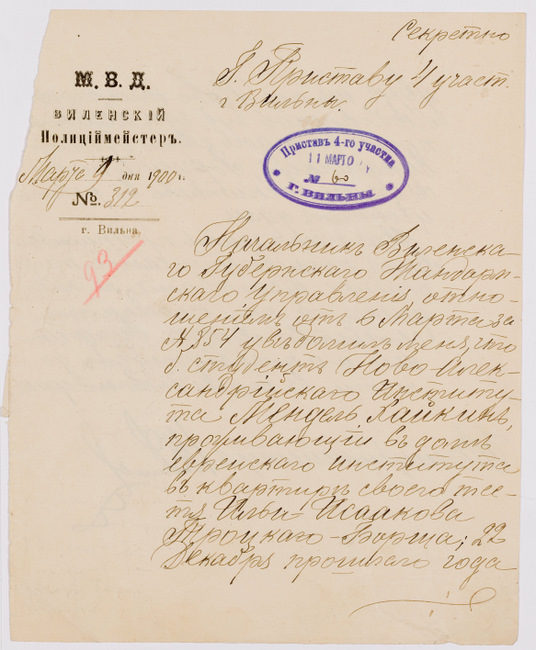 Секретно
Г. Приставу 4 участ.
г Вильны.
М. В. Д.
ВИЛЕНСКІЙ
Полиціймейстеръ.
Марта 9 дня 1900 г.
№. 312
г. Вильна.
93
Приставъ 4-го участка
11 МАРТО
№ 60
Г. ВИЛЬНЫ
Начальникъ Виленска-
го Губернскаго Жандарм-
скаго Управленія отно-
шеніемъ отъ 6 Марта за
№ 354 увѣдомилъ меня, что
б. студентъ Ново-Алек-
сандрійскаго Институ-
та Мендель Хайкинъ,
проживающій въ домѣ
еврейскаго института
въ квартирѣ своего тес-
тя Ильи Исаакова
Троцкаго-Борща; 22
Декабря прошлаго года